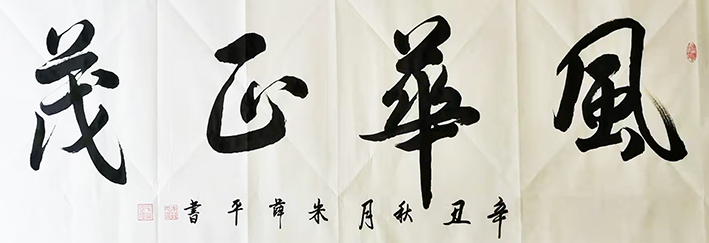 風華正茂
辛丑秋月朱薛平書